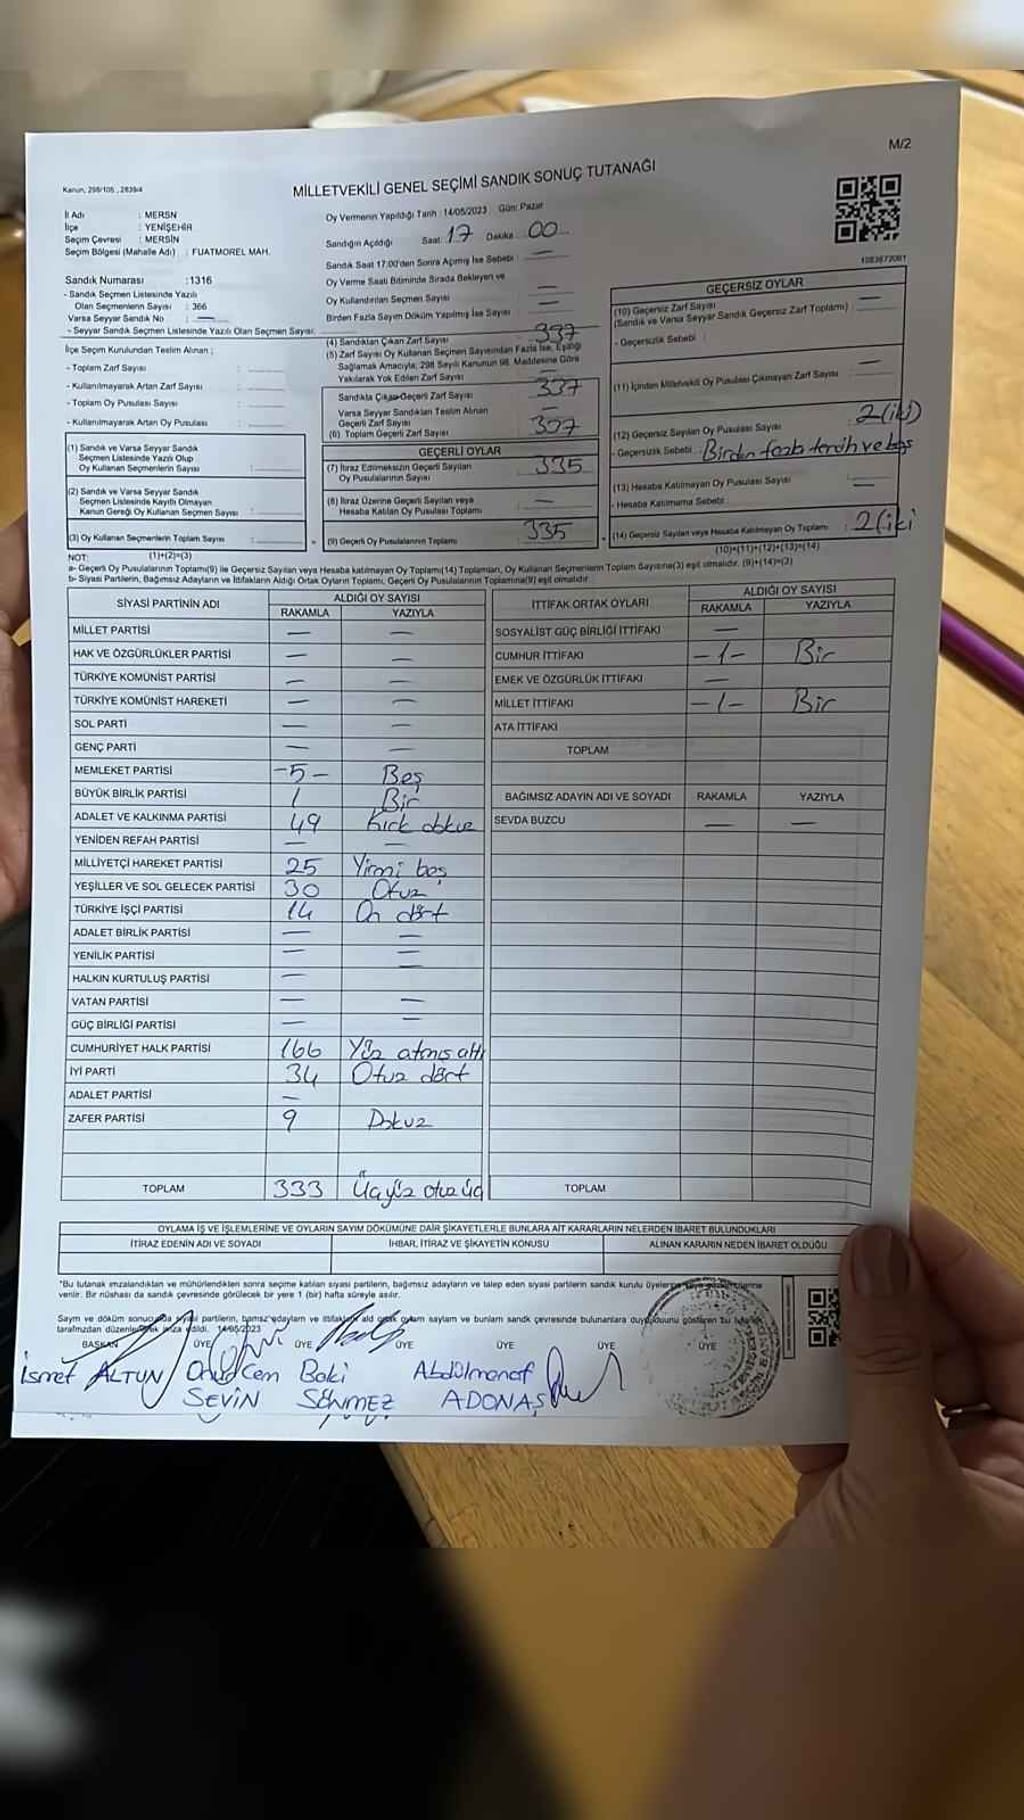 M/2
Kanun, 298/105 , 2839/4
MİLLETVEKİLİ GENEL SEÇİMİ SANDIK SONUÇ TUTANAĞI
İl Adı : MERSN
İlçe : YENİŞEHİR
Seçim Çevresi : MERSİN
Seçim Bölgesi (Mahalle Adı) : FUATMOREL MAH.
Oy Vermenin Yapıldığı Tarih : 14/05/2023 Gün: Pazar
Sandığın Açıldığı Saat: 17 Dakika : 00
Sandık Saat 17:00'den Sonra Açılmış İse Sebebi : —
Oy Verme Saati Bitiminde Sırada Bekleyen ve
Oy Kullandırılan Seçmen Sayısı —
Birden Fazla Sayım Döküm Yapılmış İse Sayısı —
1083872001
Sandık Numarası : 1316
- Sandık Seçmen Listesinde Yazılı
Olan Seçmenlerin Sayısı : 366
Varsa Seyyar Sandık No : —
- Seyyar Sandık Seçmen Listesinde Yazılı Olan Seçmen Sayısı:
İlçe Seçim Kurulundan Teslim Alınan ;
- Toplam Zarf Sayısı :
- Kullanılmayarak Artan Zarf Sayısı :
- Toplam Oy Pusulası Sayısı :
- Kullanılmayarak Artan Oy Pusulası :
(1) Sandık ve Varsa Seyyar Sandık
Seçmen Listesinde Yazılı Olup
Oy Kullanan Seçmenlerin Sayısı :
(2) Sandık ve Varsa Seyyar Sandık
Seçmen Listesinde Kayıtlı Olmayan
Kanun Gereği Oy Kullanan Seçmen Sayısı :
(3) Oy Kullanan Seçmenlerin Toplam Sayısı :
(4) Sandıktan Çıkan Zarf Sayısı 337
(5) Zarf Sayısı Oy Kullanan Seçmen Sayısından Fazla İse, Eşitliği
Sağlamak Amacıyla, 298 Sayılı Kanunun 98. Maddesine Göre
Yakılarak Yok Edilen Zarf Sayısı —
Sandıkta Çıkan Geçerli Zarf Sayısı 337
Varsa Seyyar Sandıktan Teslim Alınan
Geçerli Zarf Sayısı —
(6) Toplam Geçerli Zarf Sayısı 337
GEÇERLİ OYLAR
(7) İtiraz Edilmeksizin Geçerli Sayılan
Oy Pusulalarının Sayısı 335
(8) İtiraz Üzerine Geçerli Sayılan veya
Hesaba Katılan Oy Pusulası Toplamı —
(9) Geçerli Oy Pusulalarının Toplamı 335
GEÇERSİZ OYLAR
(10) Geçersiz Zarf Sayısı —
(Sandık ve Varsa Seyyar Sandık Geçersiz Zarf Toplamı) :
- Geçersizlik Sebebi :
(11) İçinden Milletvekili Oy Pusulası Çıkmayan Zarf Sayısı —
(12) Geçersiz Sayılan Oy Pusulası Sayısı : 2 (iki)
- Geçersizlik Sebebi : Birden fazla tercih ve boş
(13) Hesaba Katılmayan Oy Pusulası Sayısı —
- Hesaba Katılmama Sebebi
(14) Geçersiz Sayılan veya Hesaba Katılmayan Oy Toplamı : 2 (iki
(10)+(11)+(12)+(13)=(14)
NOT: (1)+(2)=(3)
a- Geçerli Oy Pusulalarının Toplamı(9) ile Geçersiz Sayılan veya Hesaba katılmayan Oy Toplamı(14) Toplamları, Oy Kullanan Seçmenlerin Toplam Sayısına(3) eşit olmalıdır. (9)+(14)=(3)
b- Siyasi Partilerin, Bağımsız Adayların ve İttifakların Aldığı Ortak Oyların Toplamı, Geçerli Oy Pusulalarının Toplamına(9) eşit olmalıdır
SİYASİ PARTİNİN ADI ALDIĞI OY SAYISI
RAKAMLA YAZIYLA
MİLLET PARTİSİ — —
HAK VE ÖZGÜRLÜKLER PARTİSİ — —
TÜRKİYE KOMÜNİST PARTİSİ — —
TÜRKİYE KOMÜNİST HAREKETİ — —
SOL PARTİ — —
GENÇ PARTİ — —
MEMLEKET PARTİSİ -5- Beş
BÜYÜK BİRLİK PARTİSİ 1 Bir
ADALET VE KALKINMA PARTİSİ 49 Kırk dokuz
YENİDEN REFAH PARTİSİ — —
MİLLİYETÇİ HAREKET PARTİSİ 25 Yirmi beş
YEŞİLLER VE SOL GELECEK PARTİSİ 30 Otuz
TÜRKİYE İŞÇİ PARTİSİ 14 On dört
ADALET BİRLİK PARTİSİ — —
YENİLİK PARTİSİ — —
HALKIN KURTULUŞ PARTİSİ — —
VATAN PARTİSİ — —
GÜÇ BİRLİĞİ PARTİSİ — —
CUMHURİYET HALK PARTİSİ 166 Yüz atmış altı
İYİ PARTİ 34 Otuz dört
ADALET PARTİSİ —
ZAFER PARTİSİ 9 Dokuz
TOPLAM 333 Üçyüz otuz üç
İTTİFAK ORTAK OYLARI ALDIĞI OY SAYISI
RAKAMLA YAZIYLA
SOSYALİST GÜÇ BİRLİĞİ İTTİFAKI —
CUMHUR İTTİFAKI -1- Bir
EMEK VE ÖZGÜRLÜK İTTİFAKI —
MİLLET İTTİFAKI -1- Bir
ATA İTTİFAKI
TOPLAM
BAĞIMSIZ ADAYIN ADI VE SOYADI RAKAMLA YAZIYLA
SEVDA BUZCU — —
TOPLAM
OYLAMA İŞ VE İŞLEMLERİNE VE OYLARIN SAYIM DÖKÜMÜNE DAİR ŞİKAYETLERLE BUNLARA AİT KARARLARIN NELERDEN İBARET BULUNDUKLARI
İTİRAZ EDENİN ADI VE SOYADI İHBAR, İTİRAZ VE ŞİKAYETİN KONUSU ALINAN KARARIN NEDEN İBARET OLDUĞU
*Bu tutanak imzalandıktan ve mühürlendikten sonra seçime katılan siyasi partilerin, bağımsız adayların ve talep eden siyasi partilerin sandık kurulu
verilir. Bir nüshası da sandık çevresinde görülecek bir yere 1 (bir) hafta süreyle asılır.
Sayım ve döküm partilerin, adayların ve oyların sayılarını ve bunların sandık çevresinde bulunanlara
tarafımızdan imza edildi. 14/05/2023
BAŞKAN ÜYE ÜYE ÜYE ÜYE ÜYE ÜYE
İsmet ALTUN Onur Cem Baki Abdülmenaf
SEVİN SÖNMEZ ADONAŞ